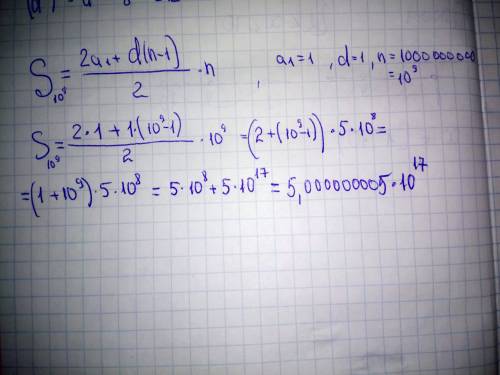 S_{10^9} = \frac{2a_1 + d(n-1)}{2} \cdot n , a_1 = 1 , d = 1 , n = 1000000000 = 10^9
S_{10^9} = \frac{2 \cdot 1 + 1 \cdot (10^9 - 1)}{2} \cdot 10^9 = (2 + (10^9 - 1)) \cdot 5 \cdot 10^8 =
= (1 + 10^9) \cdot 5 \cdot 10^8 = 5 \cdot 10^8 + 5 \cdot 10^{17} = 5,000000005 \cdot 10^{17}